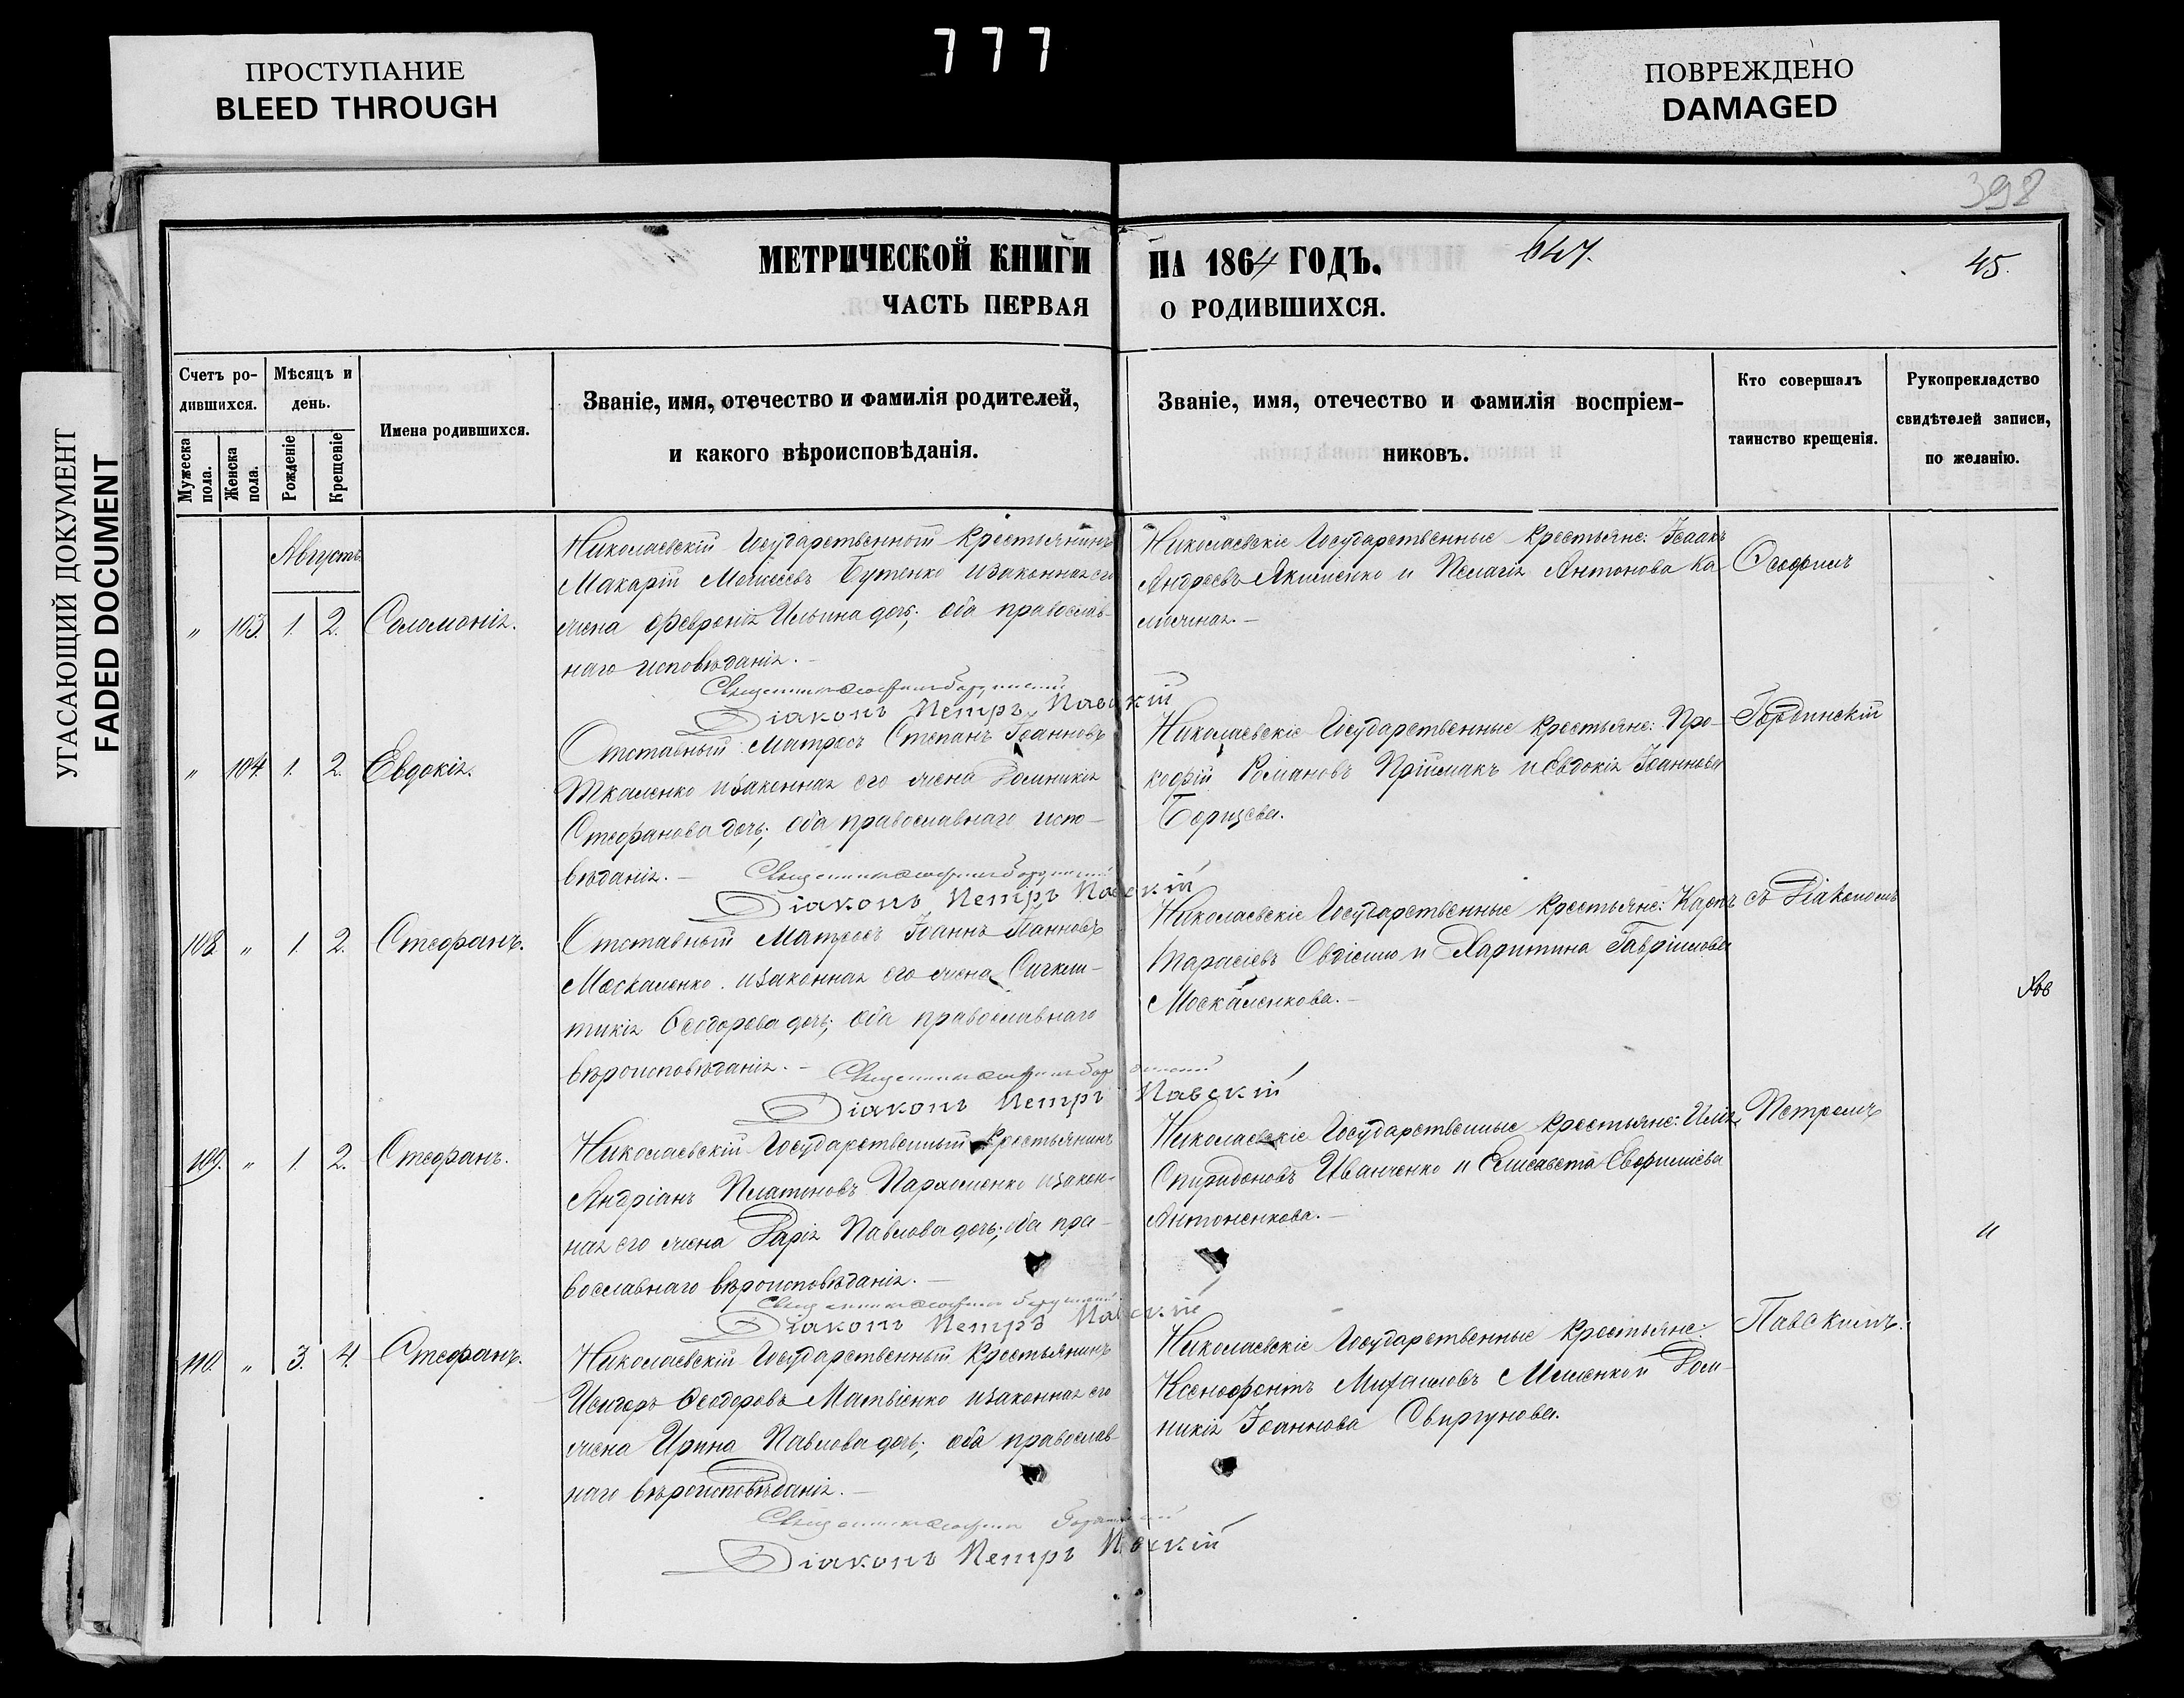 777
ПРОСТУПАНИЕ
BLEED THROUGH
ПОВРЕЖДЕНО
DAMAGED
УГАСАЮЩИЙ ДОКУМЕНТ
FADED DOCUMENT
398
МЕТРИЧЕСКОЙ КНИГИ НА 1864 ГОДЪ.
647.
45.
ЧАСТЬ ПЕРВАЯ О РОДИВШИХСЯ.
Счетъ ро-
дившихся.
Мужеска
пола.
Женска
пола.
Мѣсяцъ и
день.
Рожденіе
Крещеніе
Имена родившихся.
Званіе, имя, отечество и фамилія родителей,
и какого вѣроисповѣданія.
Званіе, имя, отечество и фамилія воспріем-
никовъ.
Кто совершалъ
таинство крещенія.
Рукопрекладство
свидѣтелей записи,
по желанію.
Августъ
" 103. 1. 2. Соломонія.
Николаевскій Государственный Крестьянинъ
Макарій Моисеевъ Бутенко и законная его
жена Февронія Ильина дочь; оба православ-
наго исповѣданія. –
Николаевскіе Государственные Крестьяне: Исаакъ
Андреевъ Якименко и Пелагія Антонова Ка-
Ѳеофилъ
Діаконъ Петръ Павскій
" 104. 1. 2. Евдокія.
Отставный Матросъ Степанъ Іоанновъ
Ткаленко и законная его жена Домникія
Стефанова дочь; оба православнаго испо-
вѣданія. –
Николаевскіе Государственные Крестьяне: Про-
кофій Романовъ Пріймакъ и Евдокія Іоаннова
Борщева.
Гординскій
Діаконъ Петръ Павскій
108. " 1. 2. Стефанъ.
Отставный Матросъ Іоаннъ Іоанновъ
Москаленко и законная его жена Сигкли-
тикія Ѳеодорова дочь; оба православнаго
вѣроисповѣданія. –
Николаевскіе Государственные Крестьяне: Карпъ
Тарасіевъ Овдіенко и Харитина Гавріилова
Москаленкова. –
съ Діакономъ
Діаконъ Петръ Павскій
109. " 1. 2. Стефанъ.
Николаевскій Государственный Крестьянинъ
Андріанъ Платоновъ Пархоменко и закон-
ная его жена Дарія Павлова дочь; оба пра-
вославнаго вѣроисповѣданія. –
Николаевскіе Государственные Крестьяне: Илія
Спиридоновъ Иванченко и Елисавета Евфиміева
Антоненкова. –
Петромъ
"
Діаконъ Петръ Павскій
110. " 3. 4. Стефанъ.
Николаевскій Государственный Крестьянинъ
Исидоръ Ѳеодоровъ Матвіенко и законная его
жена Ирина Павлова дочь; оба православ-
наго вѣроисповѣданія. –
Николаевскіе Государственные Крестьяне:
Ксенофонтъ Михаиловъ и Дом-
никія Іоаннова Свиргунова.
Павскимъ.
Діаконъ Петръ Павскій